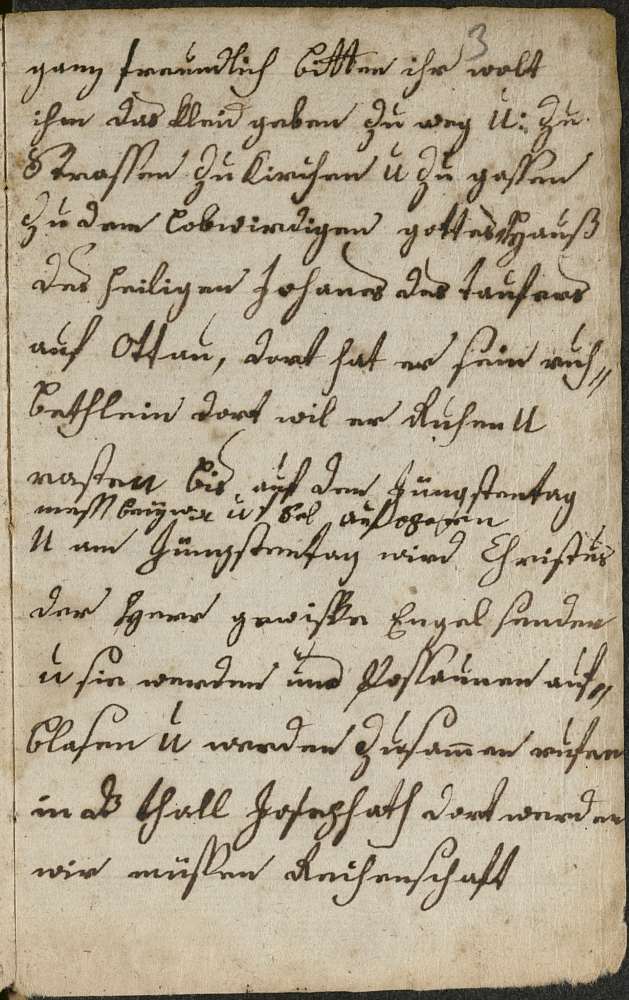 3
ganz freundlich bitten ihr wolt
ihm das kleid geben zu weg U: zu
Strassen zu kirchen U zu gassen
zu dem lobwirdigen gottes Hauß
des heiligen Johanes des taufers
auf Ottau, dort hat er sein ruh„
bethlein dort wil er Ruhen U
rasten bis auf den Jüngstentag
mess U: Sel auf opfern
U am Jüngstentag wird Christus
der Herr gewisse Engel senden
u sie werden und Possaunen auf„
blasen U werden zusamen rufen
in das thall Josephath dort werden
wir müssen Rechenschaft